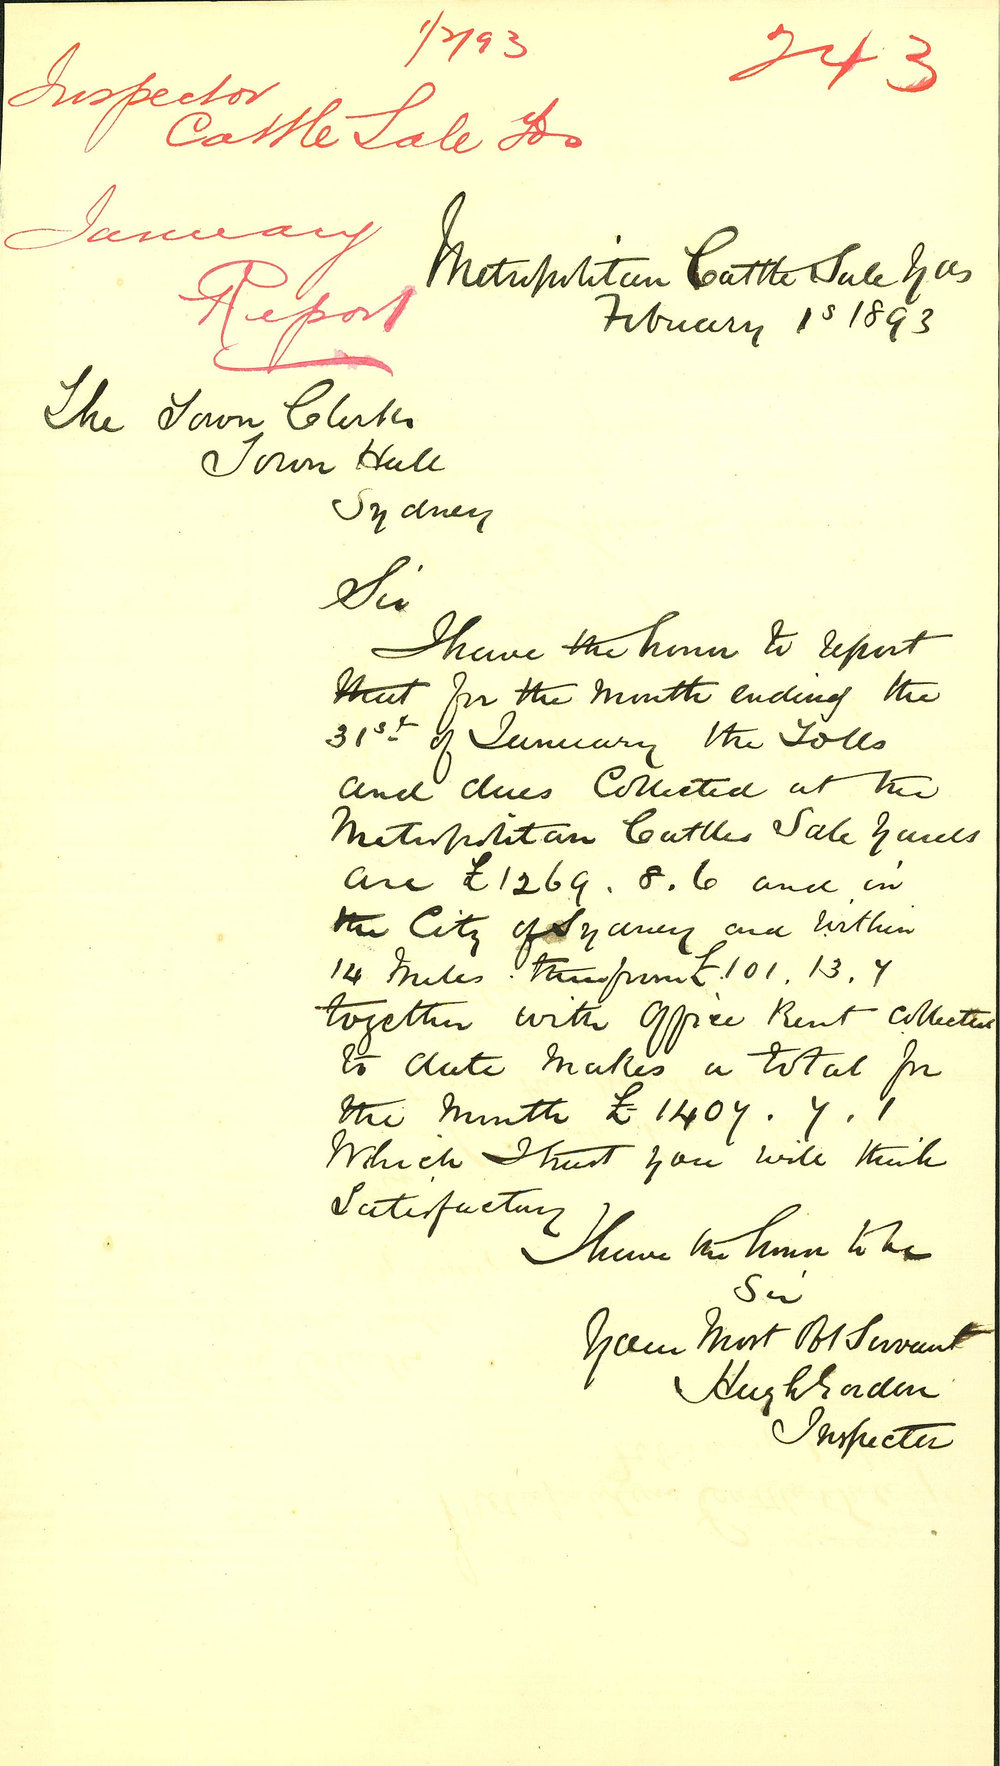 1/2/93
243
Inspector
Cattle Sale Yds
January
Report
Metropolitan Cattle Sale Yds
Febuary 1s 1893
The Town Clerk
Town Hall
Sydney
Sir
I have the honor to report
that for the month ending the
31st of January the Tolls
and dues Collected at the
Metropolitan Cattle Sale Yards
are £1269. 8. 6 and in
the City of Sydney and within
14 Miles therefrom £101. 13. 7
together with Office Rent collected
to date makes a total for
the Month £1407. 7. 1
Which I trust you will think
Satisfactory
I have the honor to be
Sir
Your Most Obt Servant
Hugh Gordon
Inspector